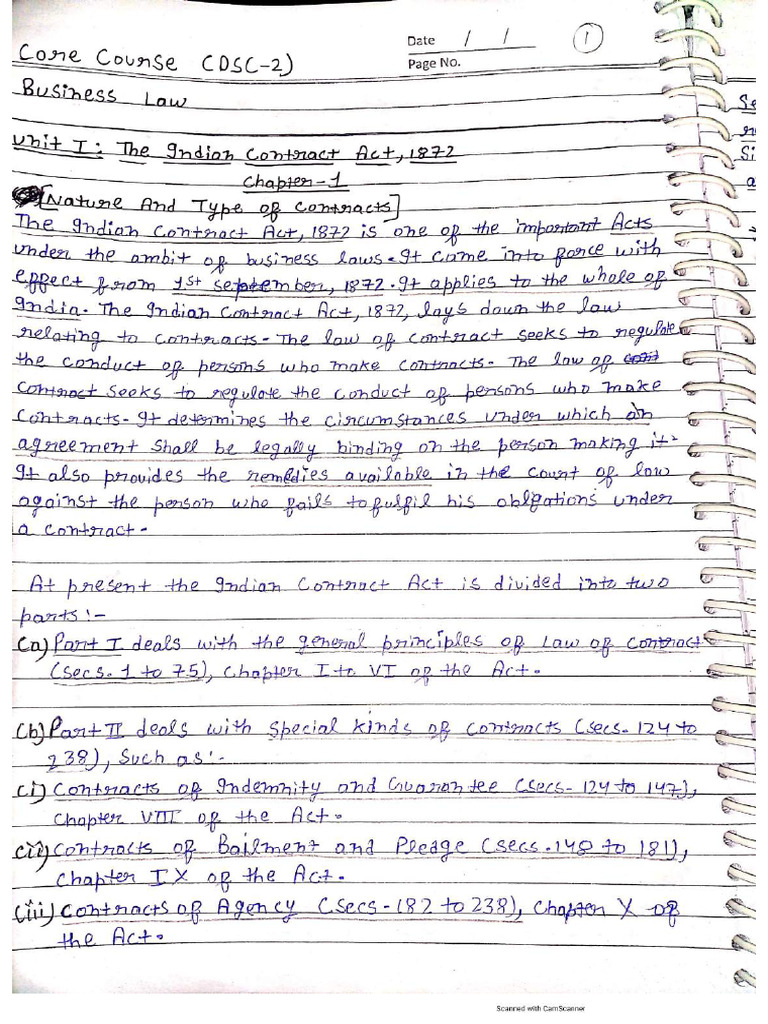 Core Course (DSC-2)
Date / / 1
Page No.
Business Law
Unit I: The Indian Contract Act, 1872
Chapter-1
[Nature And Type of Contracts]
The Indian Contract Act, 1872 is one of the important Acts
under the ambit of business laws. It came into force with
effect from 1st september, 1872. It applies to the whole of
India. The Indian Contract Act, 1872, lays down the law
relating to contracts. The law of contract seeks to regulate
the conduct of persons who make contracts. The law of
contract seeks to regulate the conduct of persons who make
contracts. It determines the circumstances under which an
agreement shall be legally binding on the person making it.
It also provides the remedies available in the court of law
against the person who fails to fulfil his obligations under
a contract.
At present the Indian Contract Act is divided into two
parts:-
(a) Part I deals with the general principles of Law of contract
(secs. 1 to 75), Chapter I to VI of the Act.
(b) Part II deals with special kinds of contracts (secs. 124 to
238), such as:-
(i) Contracts of Indemnity and Guarantee (secs- 124 to 147),
Chapter VIII of the Act.
(ii) Contracts of Bailment and Pledge (secs. 148 to 181),
Chapter IX of the Act.
(iii) Contracts of Agency (secs- 182 to 238), Chapter X of
the Act.
Scanned with CamScanner